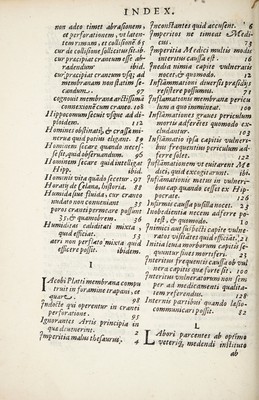 INDEX.
non adeo timet abrasionem,
et perforationem, ut laten-
tem rimam, et collisionē 65
cur ab collisione sollicitus sit. ib.
cur praecipiat cranium esse ab-
radendum ibid.
cur praecipiat cranium usq; ad
membranam non statim se-
candum. 97
cognouit membranae arctissimā
connexionē cum cranio. 108
Hippocratem secuti usque ad di-
ploidem. 112
Homines obstinati, & crassa mi-
nerua quid putent elegans. 29
Hominem secare quando neces-
se sit, quid obseruandum. 96
Hominem secare quid intelligat
Hipp. ibid.
Hominis vita quādo secetur. 97
Horatij de Celano, historia. 88
Humida siue fluida, cur cranio
nudato non conueniant 35
poros cranij permeare possunt
35. & quandonam 36
Humiditas caliditati mixta,
quid efficiat. 53
aeri non perflato mixta quid
efficere possit. ibidem.
I
IAcobi Platei membrana compu
truit in foramine trapani, et
quare. 98
Indocte qui operentur in cranij
perforatione. 95
Ignorantes Artis principia in
qua versentur. 2
Imperitia malus thesaurus. 4
Inconstantes quid accusent. 6
Imperitos ne timeat Medi-
cus. 73
Imperitia Medici multis modis
interitus causa est. 16
Ineda nimia capite vulneratis
nocet, & quomodo. 12
Inflammationi diuersis praesidijs
resistere possumus. 89
Inflāmationis membranae pericu
lum a quo immineat. 100
Inflāmationes graues periculum
mortis adferētes quomodo ex-
cludantur. 103
Inflāmatio ipsa capitis vulneri-
bus frequenter periculum ad-
ferre solet. 122
Inflāmationem ut euitarent Me
dici, quid excogitarint. ibi.
Inflāmationis metus in vulneri-
bus cap. quando cesset ex Hip-
pocrate. 126
Inf causa pusilla nocet. 23
Inobedientia necem adferre po-
test, & quomodo. 5
Inimici aut suspecti capite vulne-
ratos visitātes quid efficiāt. 23
Initia laeua morborum capitis se-
quuntur fines mortiferi. 23
Interitus frequentis causa ob vul
nera capitis quae forte sit. 100
Interitus vulneratorum non sem
per ad medicamenti qualita-
tem referendus. 128
Internis partibus quando laesio
communicari possit. 82
L
LAbori parcentes ab optimo
veteriq; medendi instituto
ab